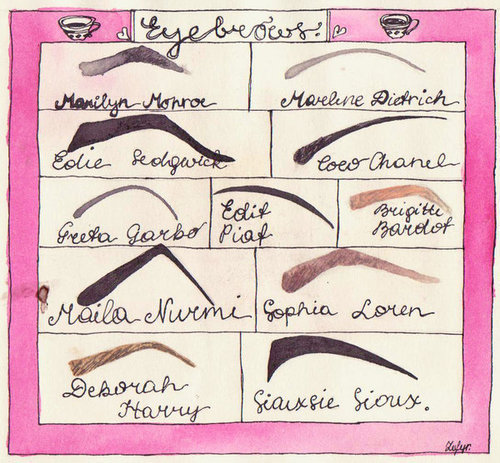 Eyebrows:
Marilyn Monroe
Marlene Dietrich
Edie Sedgwick
Coco Chanel
Greta Garbo
Edit
Piaf
Brigitte
Bardot
Maila Nurmi
Sophia Loren
Deborah
Harry
Siouxsie Sioux.